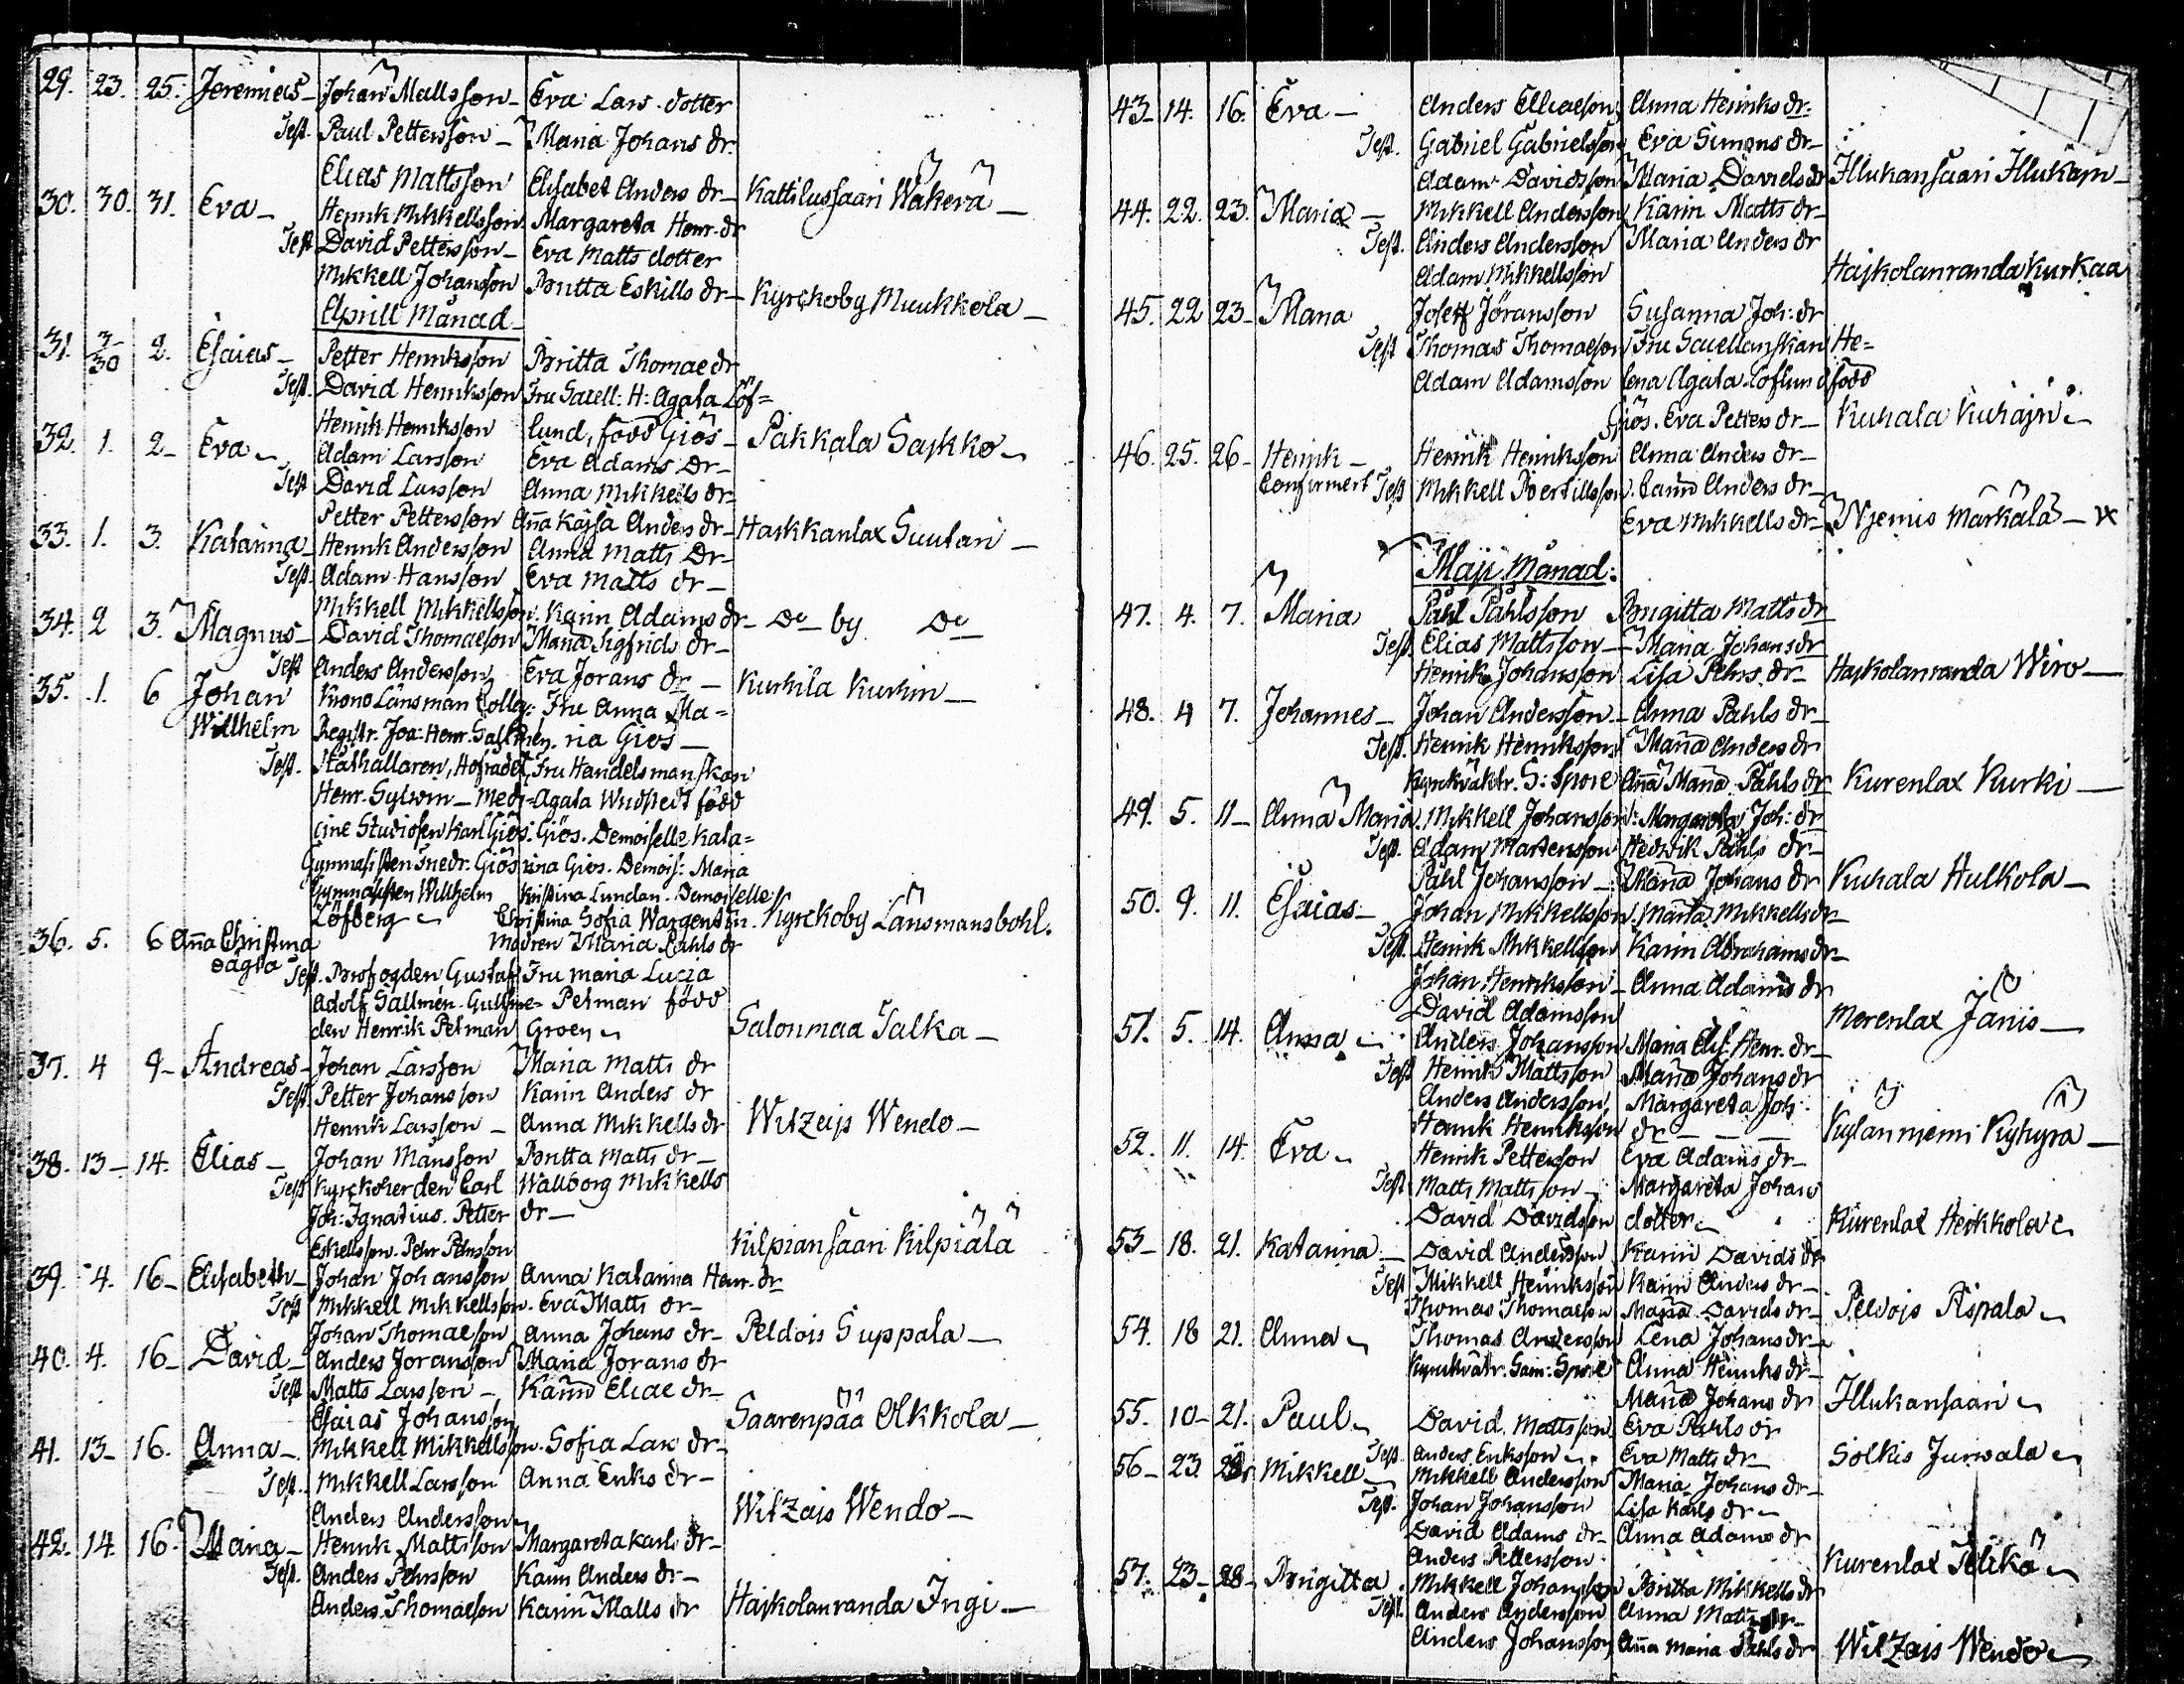 29. 23. 25. Jeremias_ Johan Mattsson_ Eva Lars dotter
Test. Paul Pettersson_ Maria Johans dr.
Elias Mattsson Elisabet Anders dr_ Kattilussaari Wäkevä_
30. 30. 31. Eva_ Henrik Mikkellsson Margareta Henr. dr
Test David Pettersson_ Eva Matts dotter
Mikkell Johansson Britta Eskills dr_ Kyrckoby Muukkola_
Aprill Månad_
31. 3/30 2. Esaias_ Petter Henriksson Britta Thomae dr
Test. David Henriksson Fru Sacell: H: Agata Löf=
Henrik Henriksson lund, född Giös_ Pakkala Sajkko
32. 1. 2_ Eva Adam Larsson Eva Adams Dr_
Test David Larsson Anna Mikkells dr_
Petter Pettersson Aña Kajsa Anders dr_ Haikkanlax Suutari_
33. 1. 3. Katarina_ Henrik Andersson Anna Matts Dr_
Test. Adam Hansson Eva Matts dr_
Mikkell Mikkellsson. Karin Adams dr_ De_ by De_
34. 2 3. Magnus_ David Thomaeson Maria Sigfrids dr_
Test Anders Andersson Eva Jörans dr_ Kurkila Kurkin_
35. 1. 6 Johan Krono Länsman Colleg: Fru Anna Ma=
Willhelm Registr. Joa: Henr. Sallmén. ria Giös_
Test. Ståthållaren, Hofrådet, Fru Handelsmanskan
Henr. Sylvvin_ Medi= Agata Wudstedt född
cine Studiosen Karl Giös. Giös. Demoiselle Kata=
Gymnasisten Friedr. Giös rina Giös. Demois: Maria
Gymnasisten Willhelm Kristina Lundan. Demoiselle
Löfberg Christina Sofia Wargentin. Kyrckoby Länsmansbohl.
36. 5. 6 Aña Christina Modren Maria Påhls dr
oägta Test. Brofogden Gustaf Fru Maria Lucia
Adolf Sallmén. Gullsme= Petman född
den Henrik Petman Groen Salonmaa Talka_
37. 4 9_ Andreas_ Johan Larsson Maria Matts dr
Test Petter Johansson Karin Anders dr
Henrik Larsson_ Anna Mikkells dr Witzaijs Wendo_
38. 13_ 14. Elias_ Johan Månsson Britta Matts dr_
Test Kyrckoherden Carl Wallborg Mikkells
Joh: Ignatius. Petter dr_
Eskellsson. Pehr Pehrsson Kilpiansaari Kilpiälä
39. 4. 16_ Elisabeth_ Johan Johansson Anna Katarina Henr. dr
Test Mikkell Mikkellsson. Eva Matts dr_
Johan Thomaeson Anna Johans dr_ Peldois Suppala_
40. 4. 16_ David_ Anders Joransson Maria Jorans dr
Test Matts Larsson_ Karin Eliae dr_
Esaias Johansson Saarenpää Olkkola_
41. 13_ 16. Anna_ Mikkell Mikkellsson. Sofia Lars dr_
Test. Mikkell Larsson Anna Eriks dr_
Anders Andersson Witzais Wendo_
42. 14. 16. Maria_ Henrik Mattsson Margareta Karls dr_
Test. Anders Pehrsson Karin Anders dr_
Anders Thomaeson Karin Matts dr Hajkolanranda Ingi_
43_ 14. 16. Eva_ Anders Eliaeson Anna Henriks dr.
Test. Gabriel Gabrielsson Eva Simons dr_
Adam Davidsson Maria Davids dr Illukansaari Illukain_
44. 22. 23. Maria_ Mikkell Andersson Karin Matts dr_
Test. Anders Andersson Maria Anders dr
Adam Mikkellsson Hajkolanranda Kurkaa
45. 22 23_ Maria Joseff Jöransson Susanna Joh: dr
Test Thomas Thomaeson Fru Sacellanskan He=
Adam Adamsson lena Agata Löflund född
Giös. Eva Petters dr_ Kuhala Kuhajn
46. 25. 26_ Henrik_ Henrik Henriksson Anna Anders dr_
Confirmert Test Mikkell Bertillsson. Carin Anders dr_
Eva Mikkells dr_ Njemis Märkälä_
Maji Månad:
47. 4. 7. Maria Påhl Påhlsson Brigitta Matts dr
Test. Elias Mattsson_ Maria Johans dr
Henrik Johansson Lisa Pehrs dr_ Hajkolanranda Wiro_
48. 4 7. Johannes_ Johan Andersson_ Anna Påhls dr_
Test. Henrik Henriksson Maria Anders dr
Kyrckväktr. S: Spore Aña Maria Påhls dr Kurenlax Kurki_
49. 5. 11_ Anna Maria. Mikkell Johansson: Margareta Joh: dr
Test. Adam Mårtensson Hedvik Påhls dr_
Påhl Johansson_ Maria Johans dr Kuhala Hulkola_
50. 9. 11. Esaias_ Johan Mikkellsson. Marta Mikkells dr_
Test. Henrik Mikkellsson Karin Abrahams dr_
Johan Henriksson_ Anna Adams dr
David Adamsson Merenlax Jänis_
51. 5. 14. Anna Anders Johansson Maria Elis. Henr. dr_
Test Henrik Mattsson Maria Johans dr
Anders Andersson Margareta Joh.
Henrik Henriksson dr_ Kylänniemi Kyhyrä_
52. 11. 14. Eva Henrik Pettersson Eva Adams dr_
Test Matts Mattsson_ Margareta Johans
David Davidsson dotter Kurenlax Heikkola
53_ 18. 21. Katarina_ David Andersson Karin Davids dr
Test Mikkell Henriksson Karin Anders dr_
Thomas Thomaeson Maria Davids dr_ Peldois Rispala
54. 18 21. Anna Thomas Andersson Lena Johans dr_
Kyrckväktr. Sam: Spore Anna Henriks dr_
Maria Johans dr Illukansaari
55. 10_ 21. Paul David Mattsson Eva Påhls dr
Test. Anders Eriksson Eva Matts dr_ Solkis Jurvala
56_ 23. 28 Mikkell_ Mikkell Andersson Maria Johans dr_
Test. Johan Johansson Lisa Karls dr
David Adams dr_ Anna Adams dr
Anders Pettersson Kurenlax Tilikä
57. 23_ 28_ Brigitta Mikkell Johansson Britta Mikkells dr
Test. Anders Andersson Anna Matts dr_
Anders Johansson Aña Maria Påhls dr Witzais Wendo